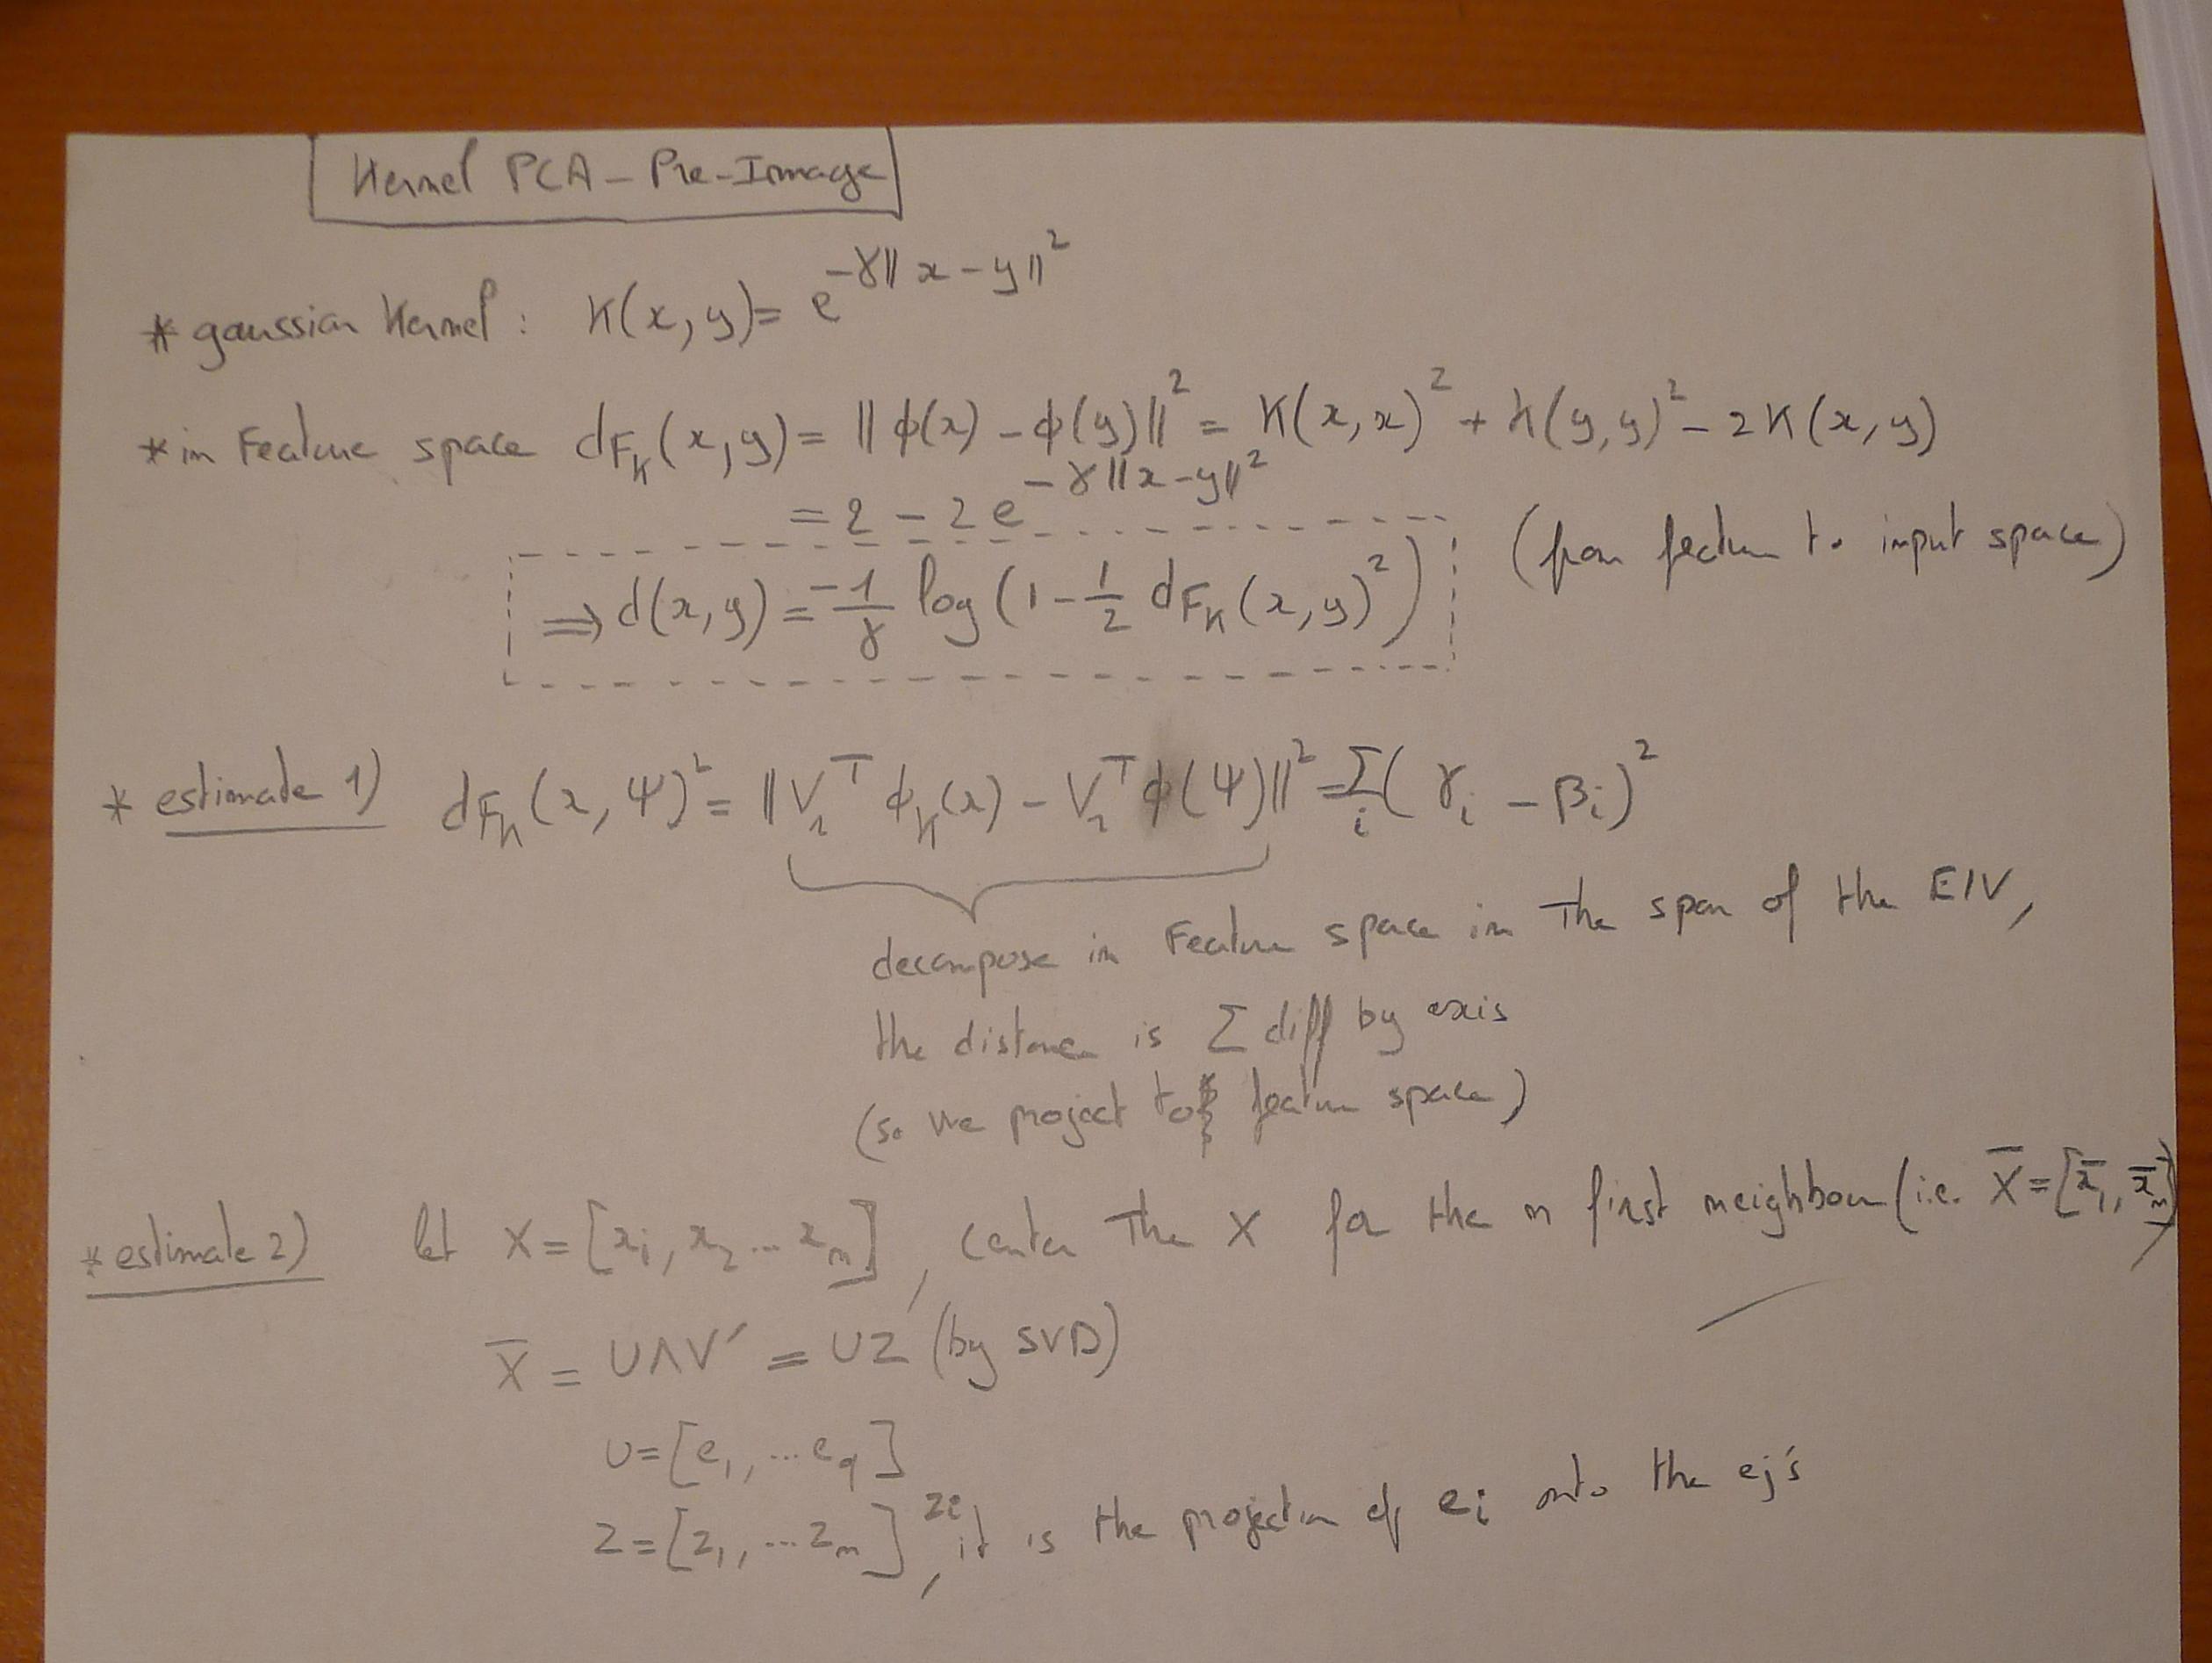 Kernel PCA - Pre-Image
* gaussian Kernel : K(x, y) = e^{-γ||x - y||^2}
* in Feature space d_{F_K}(x, y) = ||ϕ(x) - ϕ(y)||^2 = K(x, x)^2 + K(y, y)^2 - 2K(x, y)
= 2 - 2e^{-γ||x - y||^2}
(from feature to input space)
⇒ d(x, y) = -1/γ log(1 - 1/2 d_{F_K}(x, y)^2)
* estimate 1) d_{F_K}(x, Ψ)^2 = ||V_r^T ϕ_K(x) - V_r^T ϕ(Ψ)||^2 = Σ_i (γ_i - β_i)^2
decompose in Feature space in the span of the EIV,
the distance is Σ diff by axis
(so we project to feature space)
* estimate 2) let X = [x_i, x_2 ... x_n], center the X for the n first neighbour (i.e. X̄ = [x̄_1, x̄_n])
X̄ = UΛV' = UZ (by SVD)
U = [e_1, ... e_q]
Z = [z_1, ... z_n], zi it is the projection of e_i onto the ej's